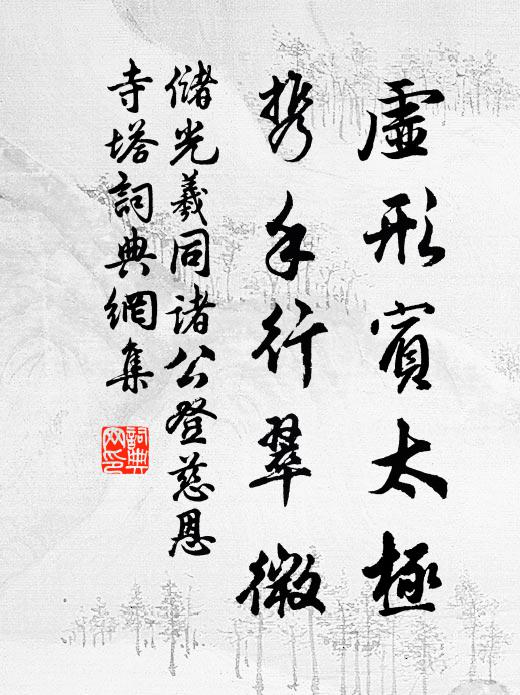 虛形賓太極
携手行翠微
儲光羲同諸公登慈恩
寺塔詞典網集
詞典
网印